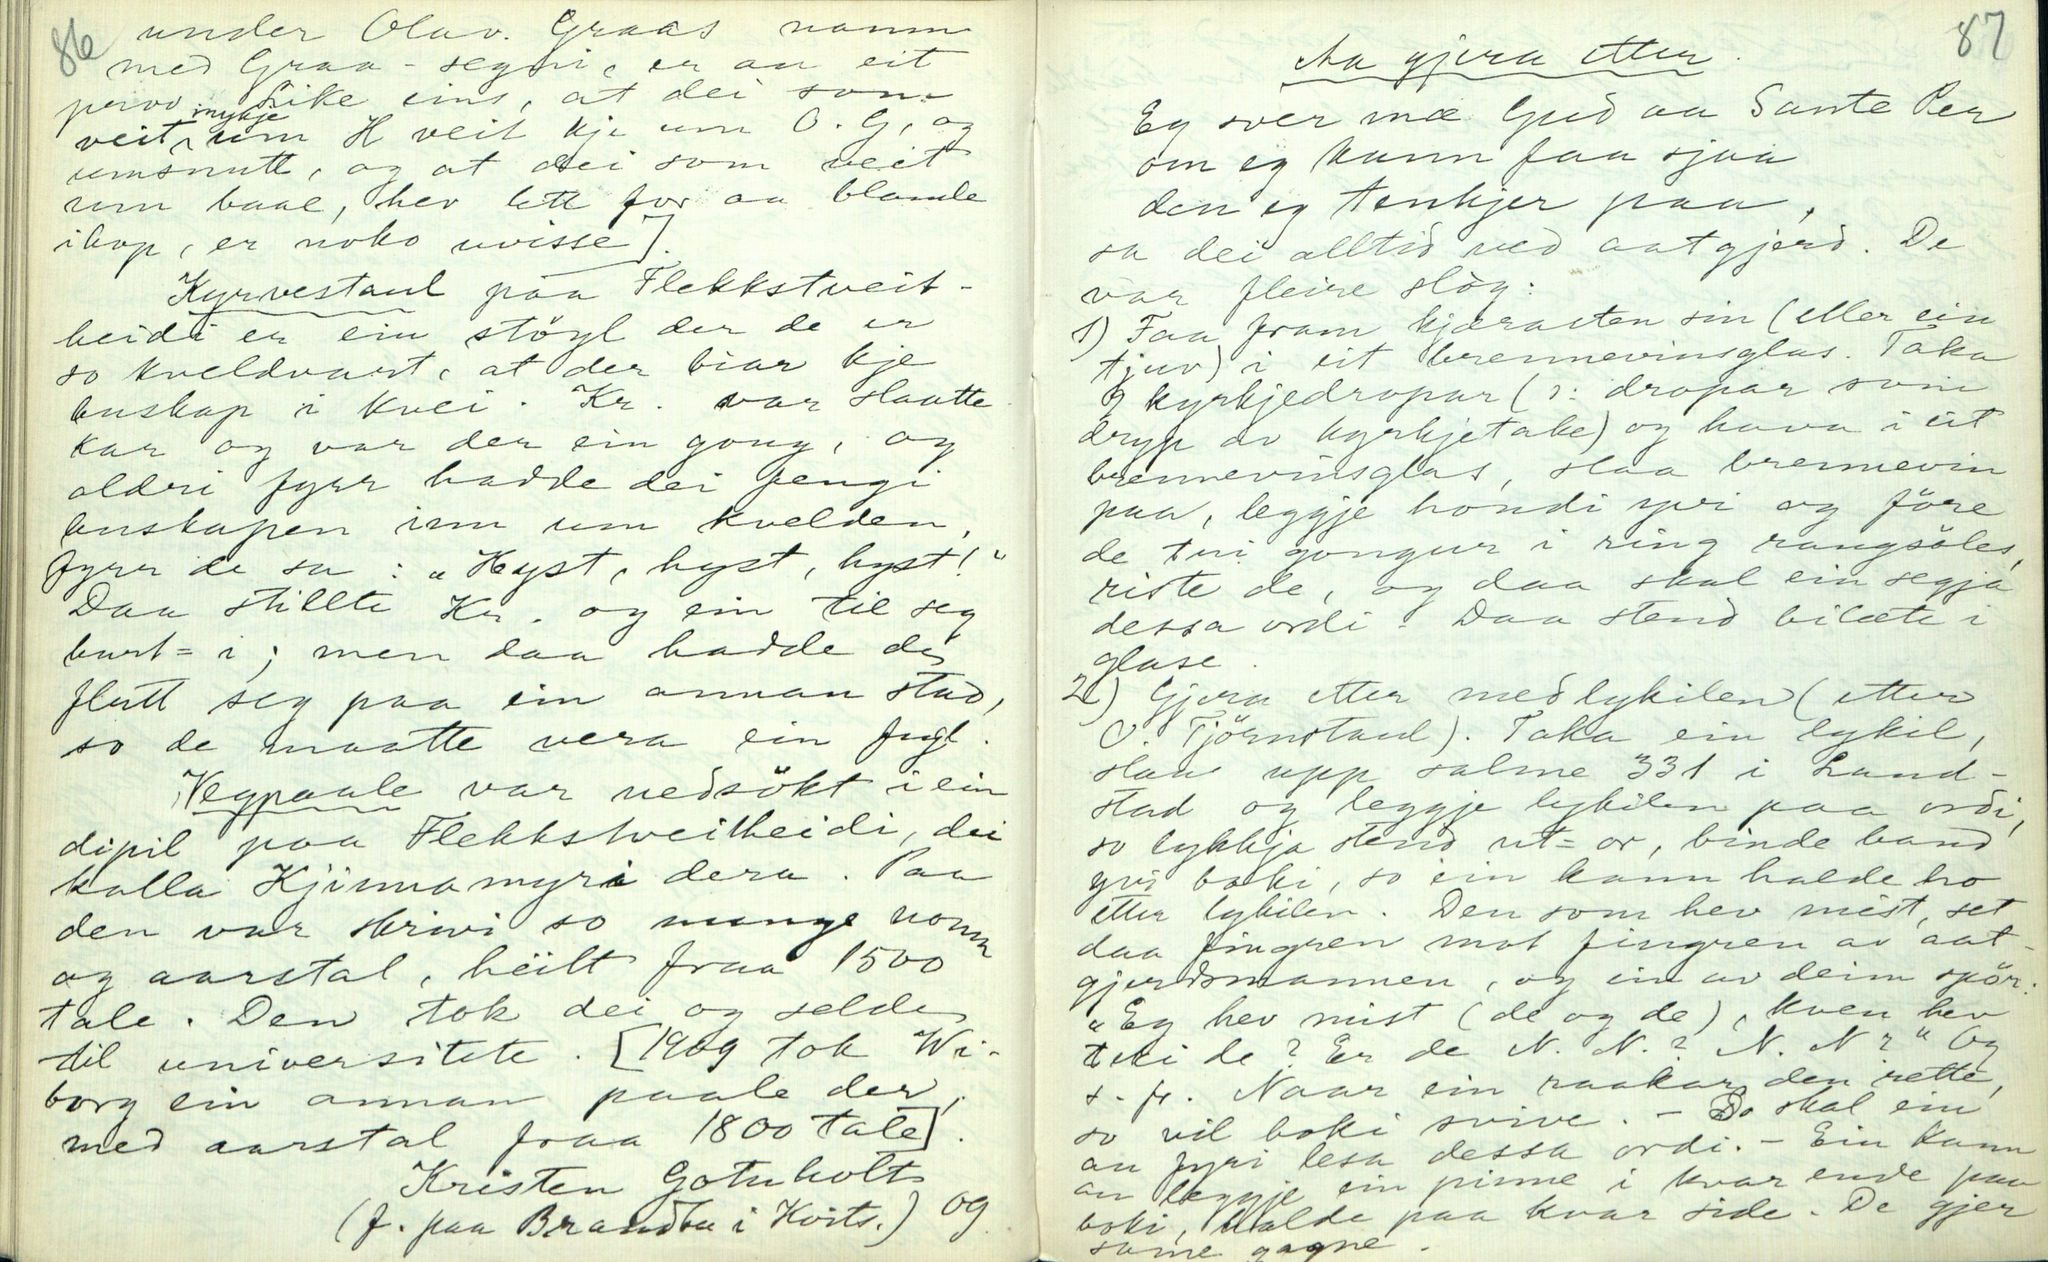 86
under Olav. Graas namn
med Graa-segni, er au eit
prov. Like eins, at dei som
veit mykje um H veit kje um O. G, og
umsnutt, og at dei som veit
um baae, hev lett for aa blande
ihop, er noko uvisse].
Kyrvestaul paa Flekkstveit-
heidi er ein stöyl der de er
so kveldvart, at der biar kje
buskap i kvei. Kr. var slaatte
kar og var der ein gong, og
aldri fyrr hadde dei fengi
buskapen inn um kvelden,
fyrr de sa: "Hyst, hyst, hyst!"
Daa stillte Kr. og ein til seg
burt=i; men daa hadde de
flutt seg paa ein annan stad,
so de maatte vera ein fugl.
Vegpaale var nedsökt i ein
dipil paa Flekkstveitheidi, dei
kalla Kjinnamyri dera. Paa
den var skrivi so mange nomn
og aarstal, heilt fraa 1500
tale. Den tok dei og selde
til universitete. [1909 tok Wi-
borg ein annan paale der,
med aarstal fraa 1800 tale].
Kristen Gotuholt
(f. paa Brandbu i Kvits.) og
87
Aa gjera etter.
Eg svër mæ Gud aa Sante Per
om eg kann faa sjaa
den eg tenkjer paa,
sa dei alltid ved aatgjerd. De
var fleire slög:
1) Faa fram kjærasten sin (eller ein
tjuv) i eit brennevinsglas. Taka
9 kyrkjedropar (ɔ: dropar som
dryp av kyrkjetake) og hava i eit
brennevinsglas, slaa brennevin
paa, leggje hondi yvi og före
de tri gongur i ring rangsöles,
riste de, og daa skal ein segja
dessa ordi. Daa stend bilæte i
glase.
2) Gjera etter med lykilen (etter
O. Tjörnstaul). Taka ein lykil,
slaa upp salme 331 i Land-
stad og leggje lykilen paa ordi,
so lykkja stend ut=or, binde band
yvi boki, so ein kann halde ho
etter lykilen. Den som hev mist, set
daa fingren mot fingren av aat-
gjerdsmannen, og ein av deim spör:
"Eg hev mist (de og de), kven hev
teki de? Er de N. N.? N. N?" Og
s. fr. Naar ein raakar den rette,
so vil boki svive. - So skal ein
au fyri lesa dessa ordi. - Ein kann
au leggje ein pinne i kvar ende paa
boki, halde paa kvar side. De gjer
same gagne.